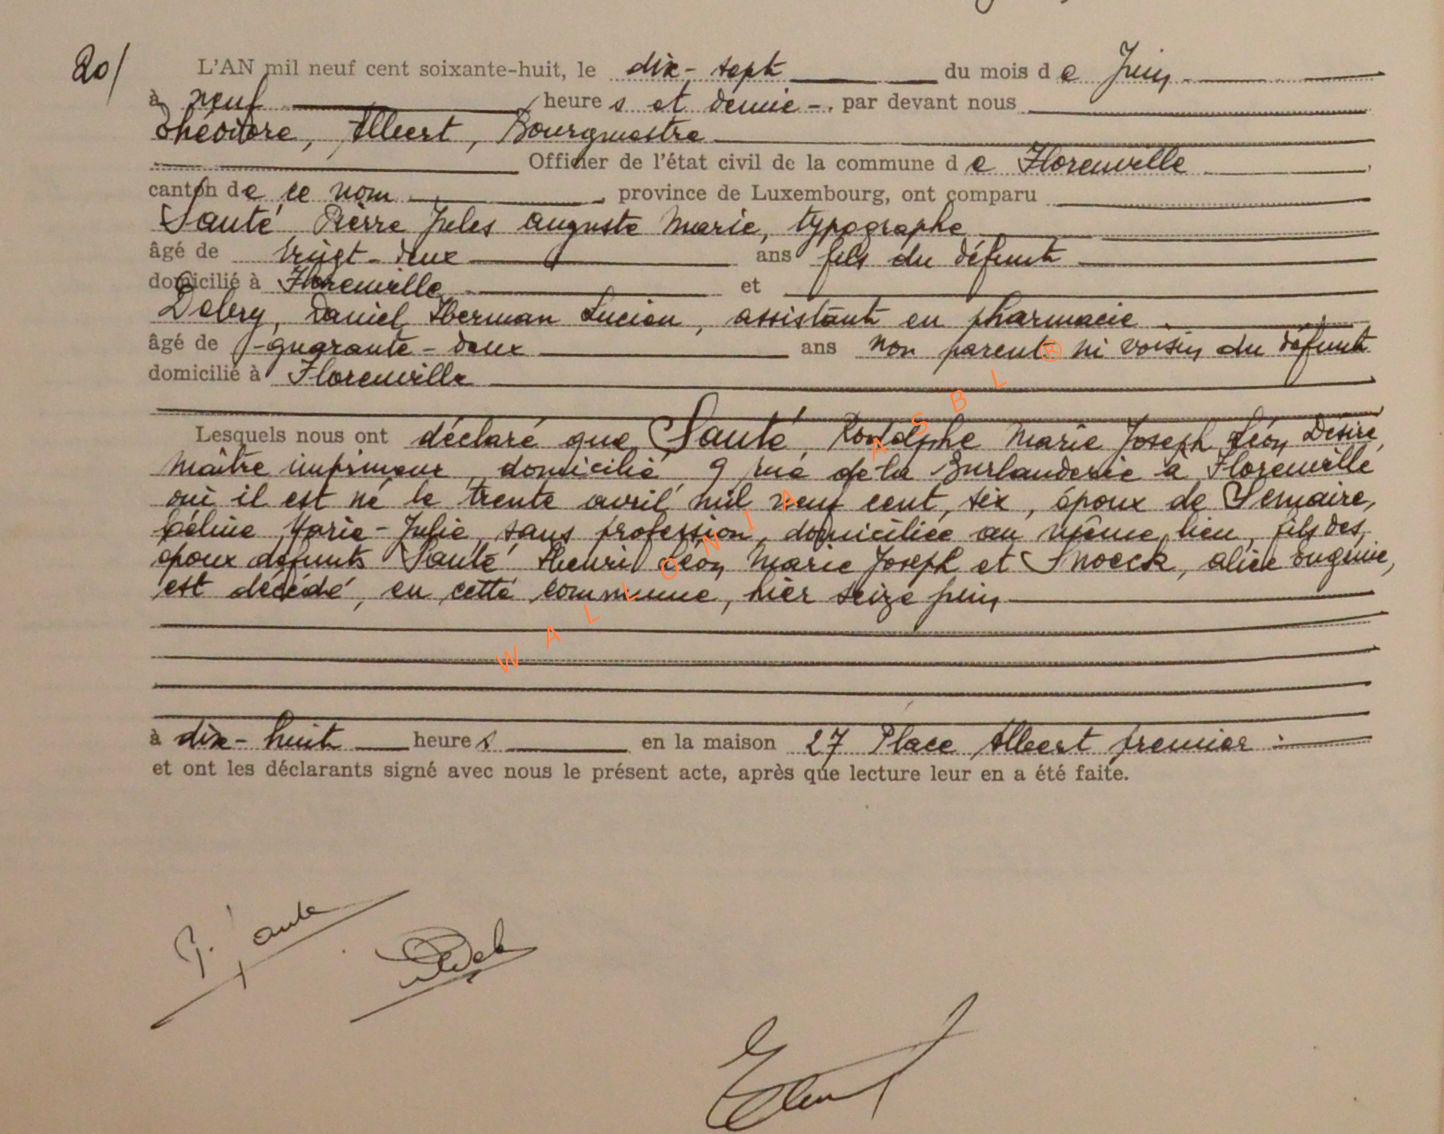 20/ L'AN mil neuf cent soixante-huit, le dix-sept du mois de Juin
à neuf heures et demie -. par devant nous
Théodore, Albert, Bourgmestre
Officier de l'état civil de la commune de Florenville
canton de ce nom , province de Luxembourg, ont comparu
Santé Pierre Jules Auguste Marie, typographe
âgé de vingt-deux ans fils du défunt
domicilié à Florenville et
Dabry, Daniel Herman Lucien, assistant en pharmacie
âgé de quarante-deux ans non parent ni voisin du défunt
domicilié à Florenville
Lesquels nous ont déclaré que Santé Rodolphe Marie Joseph Léon Désiré,
maître imprimeur, domicilié 9 rue de la Burlanderie à Florenville
où il est né le trente avril mil neuf cent six, époux de Semaire,
Céline Marie-Julie, sans profession, domiciliée au même lieu, fils des
époux défunts Santé Henri Léon Marie Joseph et Snoeck, alice Eugénie,
est décédé, en cette commune, hier seize juin
à dix-huit heures en la maison 27 Place Albert premier :
et ont les déclarants signé avec nous le présent acte, après que lecture leur en a été faite.
P. Santé
WALLONIA ASBL ®